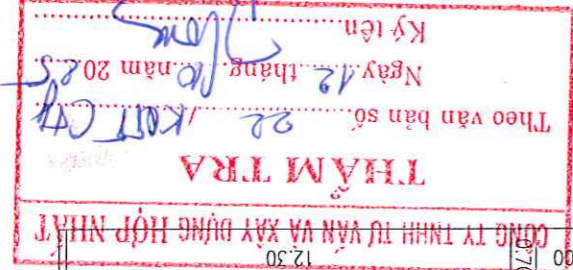 CÔNG TY TNHH TƯ VẤN VÀ XÂY DỰNG HỢP NHẤT
THẨM TRA
Theo văn bản số 22 /KQTT Cty
Ngày 12 tháng 10 năm 2025
Ký tên
12.30